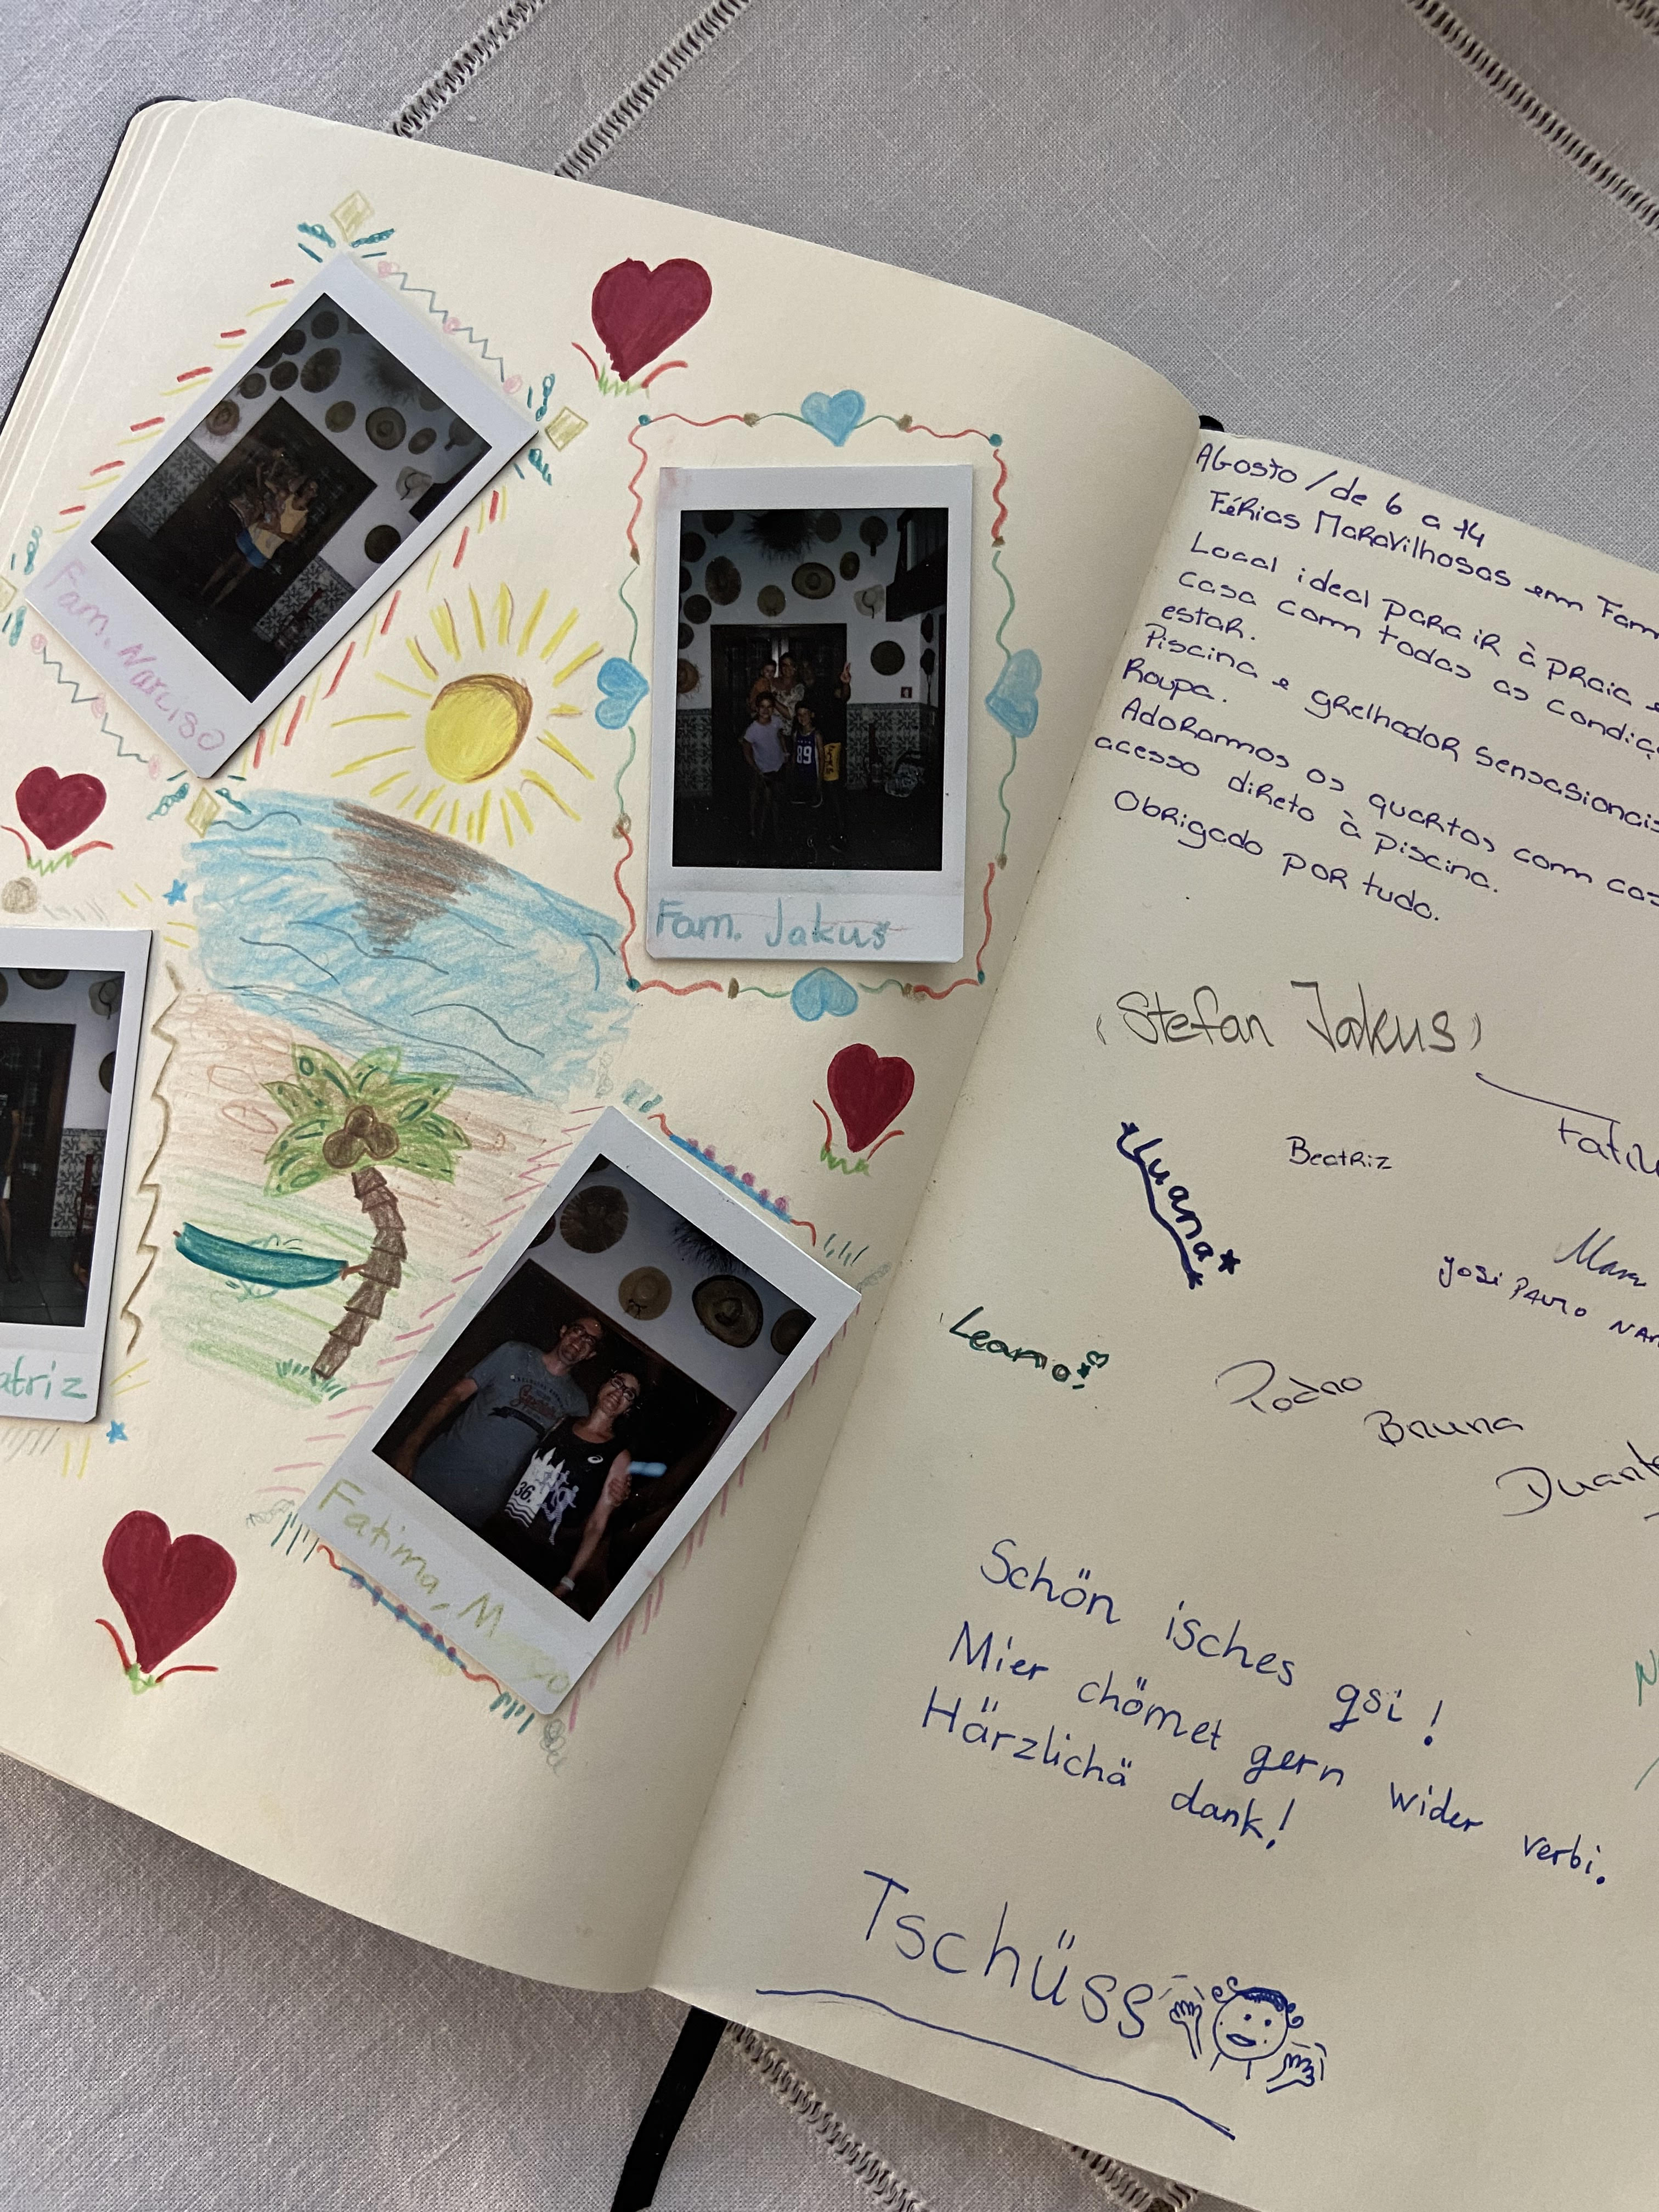 Fam. Narciso
Fam. Jakus
89
atriz
36.
Fatima,
Agosto / de 6 a 14
Férias Maravilhosas em Fam
Local ideal para ir à praia e
Casa com todas as condiç
estar.
Piscina e grelhador sensasionais
Roupa.
Adoramos os quartos com
acesso direto à piscina.
Obrigado por tudo.
(Stefan Jakus)
Beatriz
Luana
José Paulo Nar
Leano
Bruna
Schön isches gsi!
Mier chömet gern wider verbi.
Härzlichä dank!
Tschüss